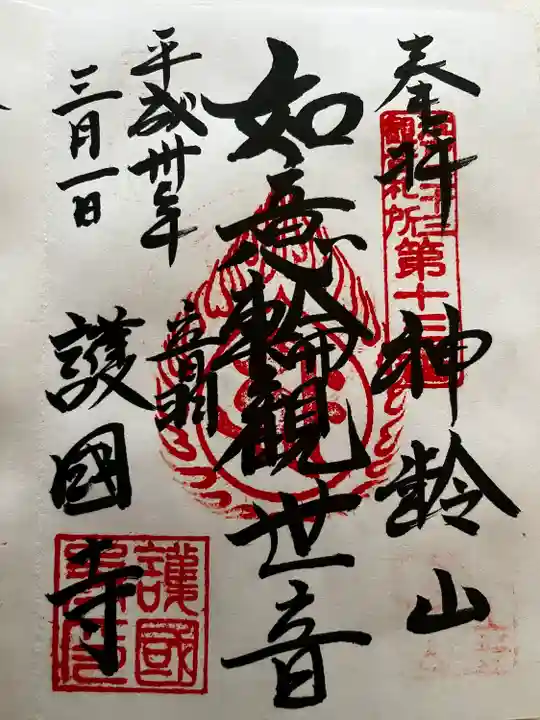 奉拝
第十三
神齢山
如意輪観世音
平成卅年
三月一日
音羽
護國寺
護國